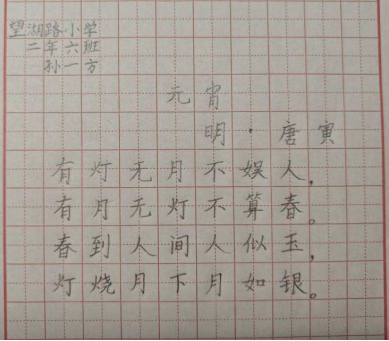 望湖路小学
二年六班
孙一方
元宵
明·唐寅
有灯无月不娱人，
有月无灯不算春。
春到人间人似玉，
灯烧月下月如银。